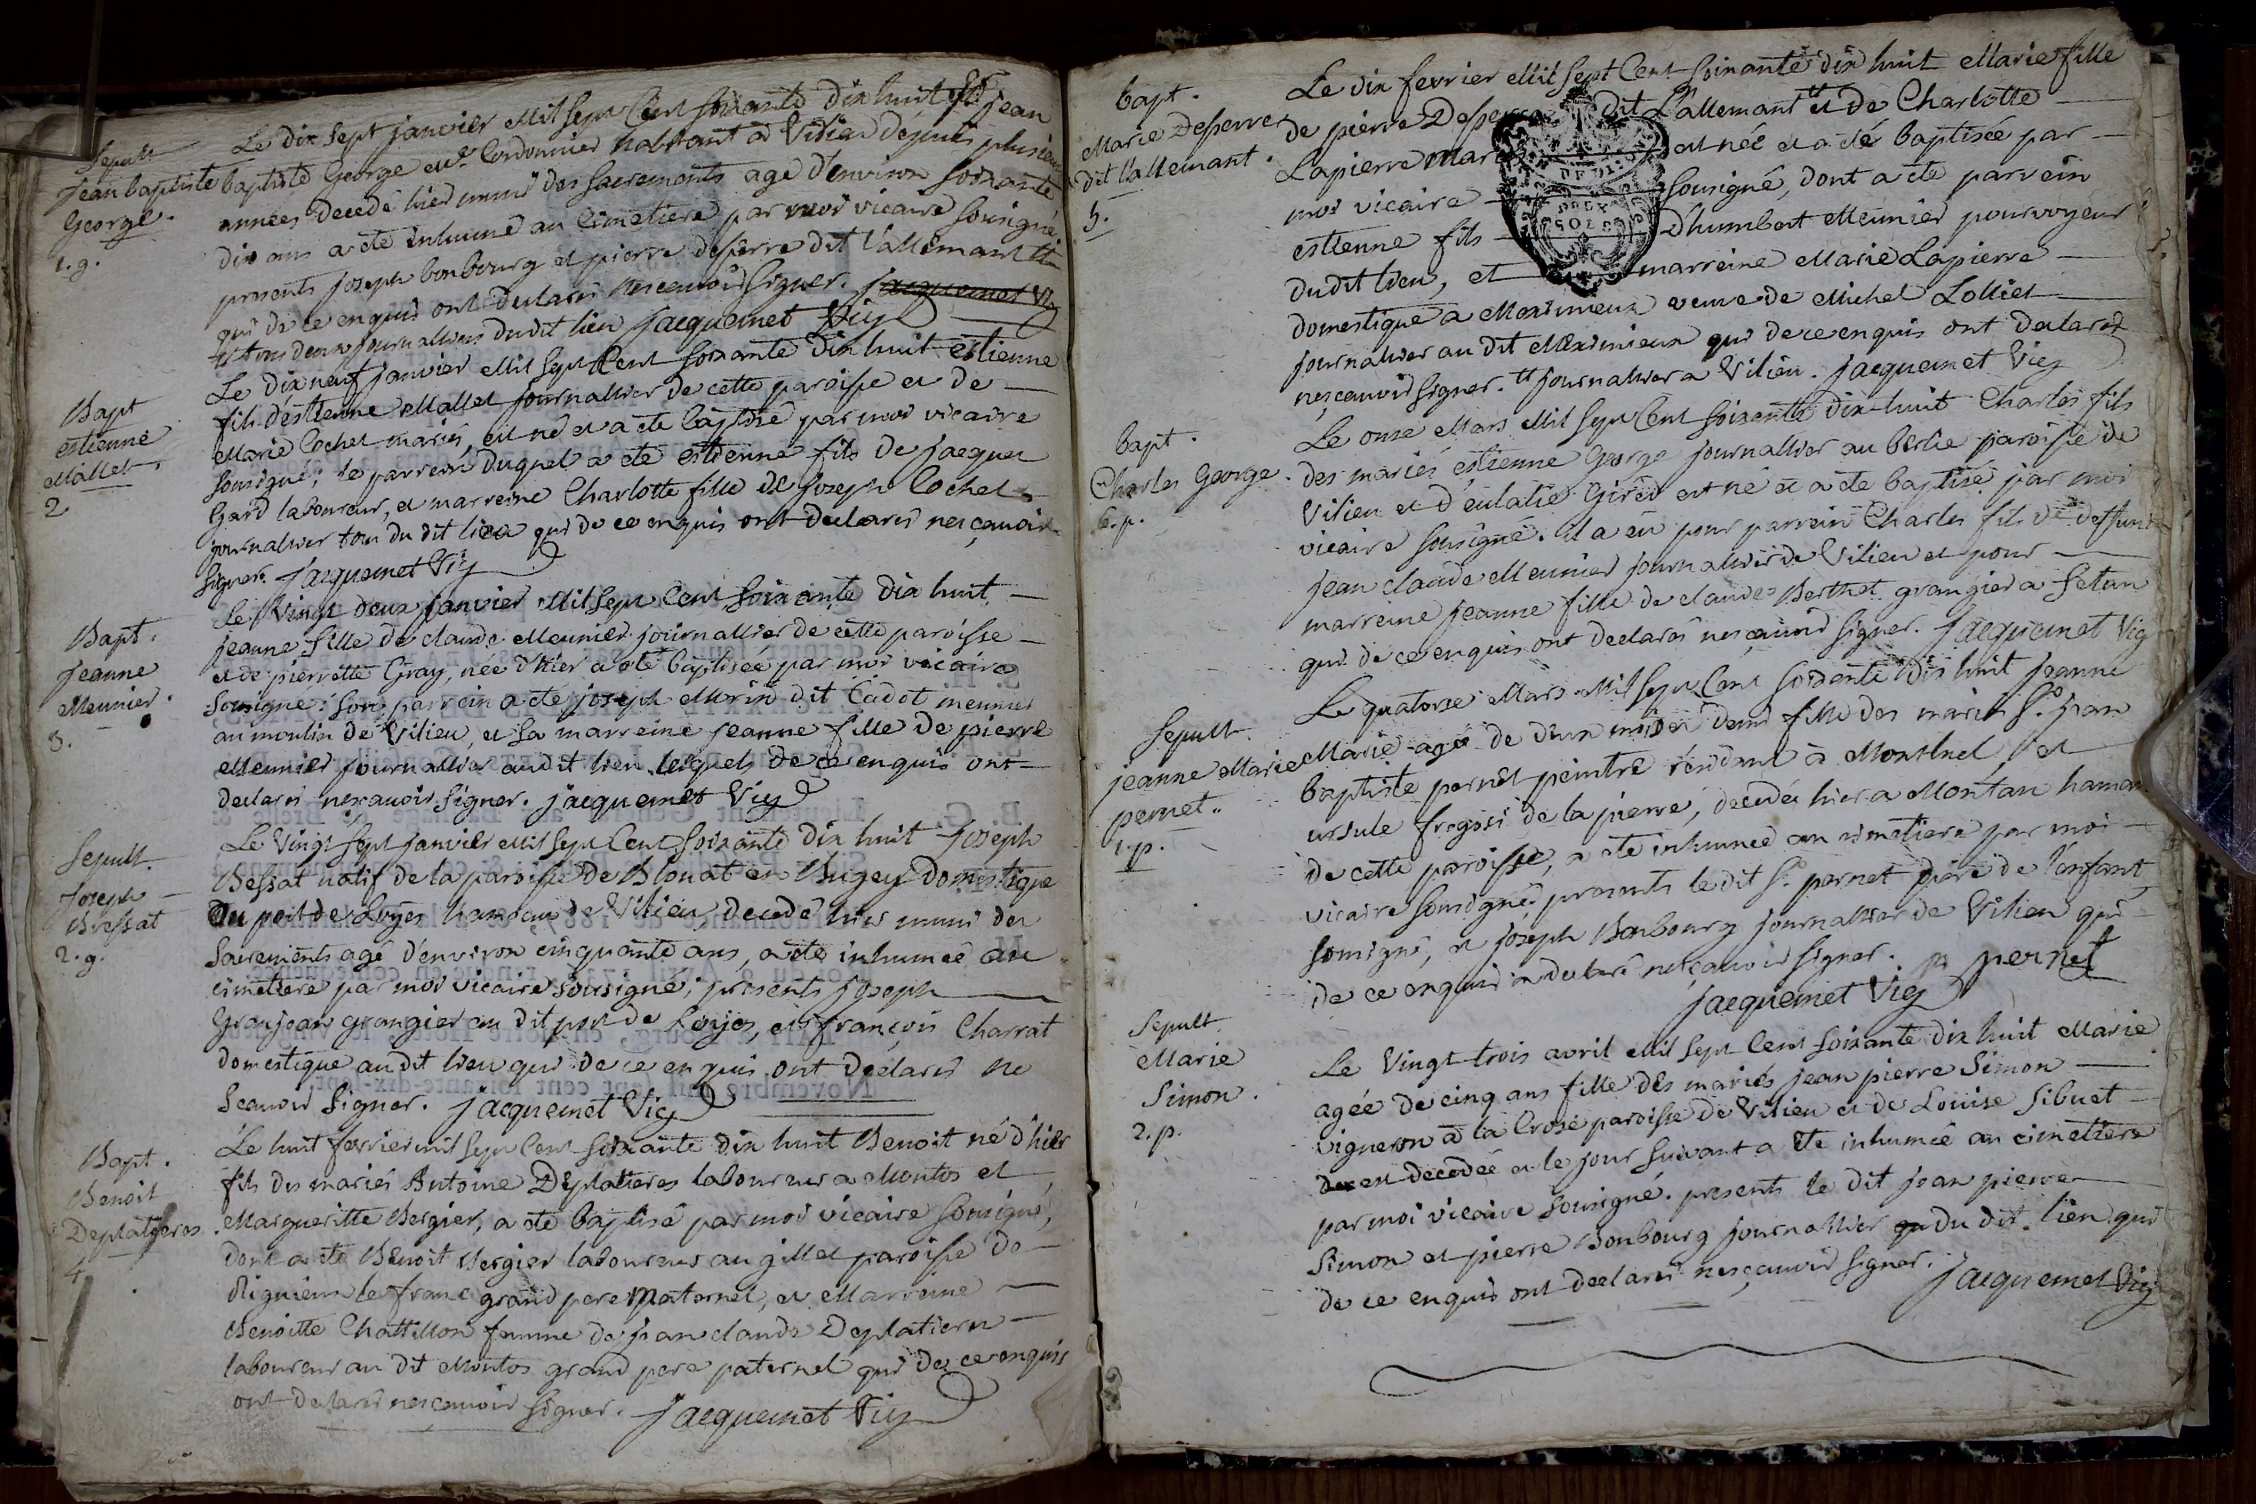 Sepult
Jean baptiste
George.
1. g.
Le dix sept janvier Mil sept Cent soixante dix huit jean
baptiste George Cordonnier habitant a Vilieu depuis plusieurs
années decedé hier muni des sacrements agé d'environ soixante
dix ans a eté inhumé au Cimetiere par moi vicaire sousigné
presents joseph bonbourg et pierre desperre dit l'allemant
qui de ce enquis ont declarés nescavoir signer. jacquemet Vic
tous deux journaliers dudit lieu jacquemet Vic
Bapt
estienne
Mallet.
2
Le dix neuf janvier Mil sept Cent soixante dix huit estienne
fils d'estienne Mallet journallier de cette paroisse et de
Marie Cochet mariés, est né et a eté baptisé par moi vicaire
sousigné; le parrein duquel a eté estienne fils de jacques
Gard laboureur, et marreine Charlotte fille de joseph Cochet
journalier tous du dit lieu qui de ce enquis ont declarés nesçavoir
signer. jacquemet Vic
Bapt.
jeanne
Meunier.
3.
Le Vingt deux janvier Mil sept Cent soixante dix huit
jeanne fille de claude Meunier journallier de cette paroisse
et de pierrette Gray, née d'hier a eté baptisée par moi vicaire
sousigné: son parrein a eté joseph Morin dit Cadot meunier
au moulin de Vilieu, et sa marreine jeanne fille de pierre
Meunier journallier audit lieu lesquels de ce enquis ont
declarés nescavoir signer. jacquemet Vic
Sepult
Joseph
Bressat
2. g.
Le Vingt sept janvier mil sept Cent soixante dix huit joseph
Bessat natif de la paroisse de Blonat en Bugey Domestique
Du port de Loyes hameau de Vilieu, decedé hier muni des
sacrements agé d'environ cinquante ans, a eté inhumé au
cimetiere par moi vicaire sousigné, presents joseph
Granjean grangier au dit port de Loyes, et françois Charrat
domestique audit lieu qui de ce enquis ont declarés ne
scavoir signer. jacquemet Vic
Bapt.
Benoit
Deplatieres
4
Le huit fevrier mil sept Cent soixante dix huit Benoit né d'hier
fils des mariés Antoine Deplatieres laboureur a Montos et
Margueritte Bergier, a eté baptisé par moi vicaire sousigné,
dont a eté Benoit Bergier laboureur au gillet paroisse de
Rignieu le franc grand pere maternel, et Marreine
Benoitte Chattillon femme de jean claude Deplatieres
laboureur au dit Montos grand pere paternel qui de ce enquis
ont declarés nescavoir signer. jacquemet Vic
bapt.
Marie Desperre
dit l'allemant.
5.
Le dix fevrier Mil sept Cent soixante dix huit Marie fille
de pierre Desperre dit L'allemant et de Charlotte
Lapierre mariés est née et a eté baptisée par
moi vicaire sousigné, dont a eté parrein
estienne fils d'humbert Meunier pourvoyeur
dudit lieu, et marreine Marie Lapierre
DEUX
SOLS
domestique a Meximieux veuve de Michel Lollier
journalier au dit Meximieux qui de ce enquis ont declarés
nesçavoir signer. journalier a Vilieu. jacquemet Vic
bapt.
Charles George.
6. p.
Le onze Mars Mil sept Cent soixante dix-huit Charles fils
des mariés estienne George journallier au berlie paroisse de
Vilieu et d'eulalie Gired est né et a eté baptisé par moi
vicaire sousigné. il a eu pour parrein Charles fils de deffunt
jean claude Meunier journalier de Vilieu et pour
marreine jeanne fille de claude Berthet grangier a Setan
qui de ce enquis ont declarés nesçavoir signer. jacquemet Vic
Sepult.
jeanne Marie
pernet.
1. p.
Le quatorze Mars Mil sept Cent soixante dix huit jeanne
Marie agée de deux mois et demi fille des mariés Sr. jean
baptiste pernet peintre résidant à Montluel, et
ursule fregosi de la pierre, decedée hier a Montan hameau
de cette paroisse, a eté inhumée au cimetiere par moi
vicaire sousigné presents le dit Sr. pernet pere de l'enfant
sousigné, et joseph Bonbourg journalier de Vilieu qui
de ce enquis a declaré nesçavoir signer. pernet
jacquemet Vic
Sepult
Marie
Simon.
2. p.
Le Vingt-trois avril Mil sept Cent soixante dix huit Marie
agée de cinq ans fille des mariés jean pierre Simon
vigneron a la Croze paroisse de Vilieu et de Louise Sibuet
est decedée et le jour suivant a eté inhumée au cimetiere
par moi vicaire sousigné. presents le dit jean pierre
Simon et pierre Bonbourg journallier du dit lieu qui
de ce enquis ont declarés nesçavoir signer.
jacquemet Vic